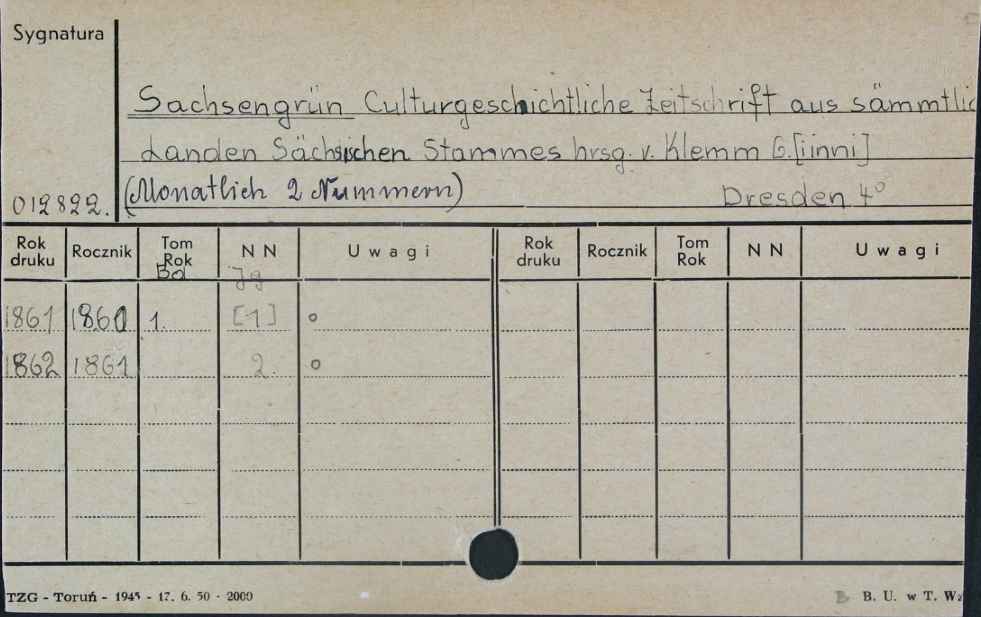 Sygnatura
Sachsengrün Culturgeschichtliche Zeitschrift aus sämmtlic
Landen Sächsischen Stammes hrsg. v. Klemm G. [iinni]
(Monatlich 2 Nummern) Dresden 4°
012822.
Rok druku Rocznik Tom Rok Bd N N Jg U w a g i Rok druku Rocznik Tom Rok N N U w a g i
1861 1860 1. [1] o
1862 1861 2. o
TZG - Toruń - 1945 - 17. 6. 50 - 2000 B. U. w T. Wz